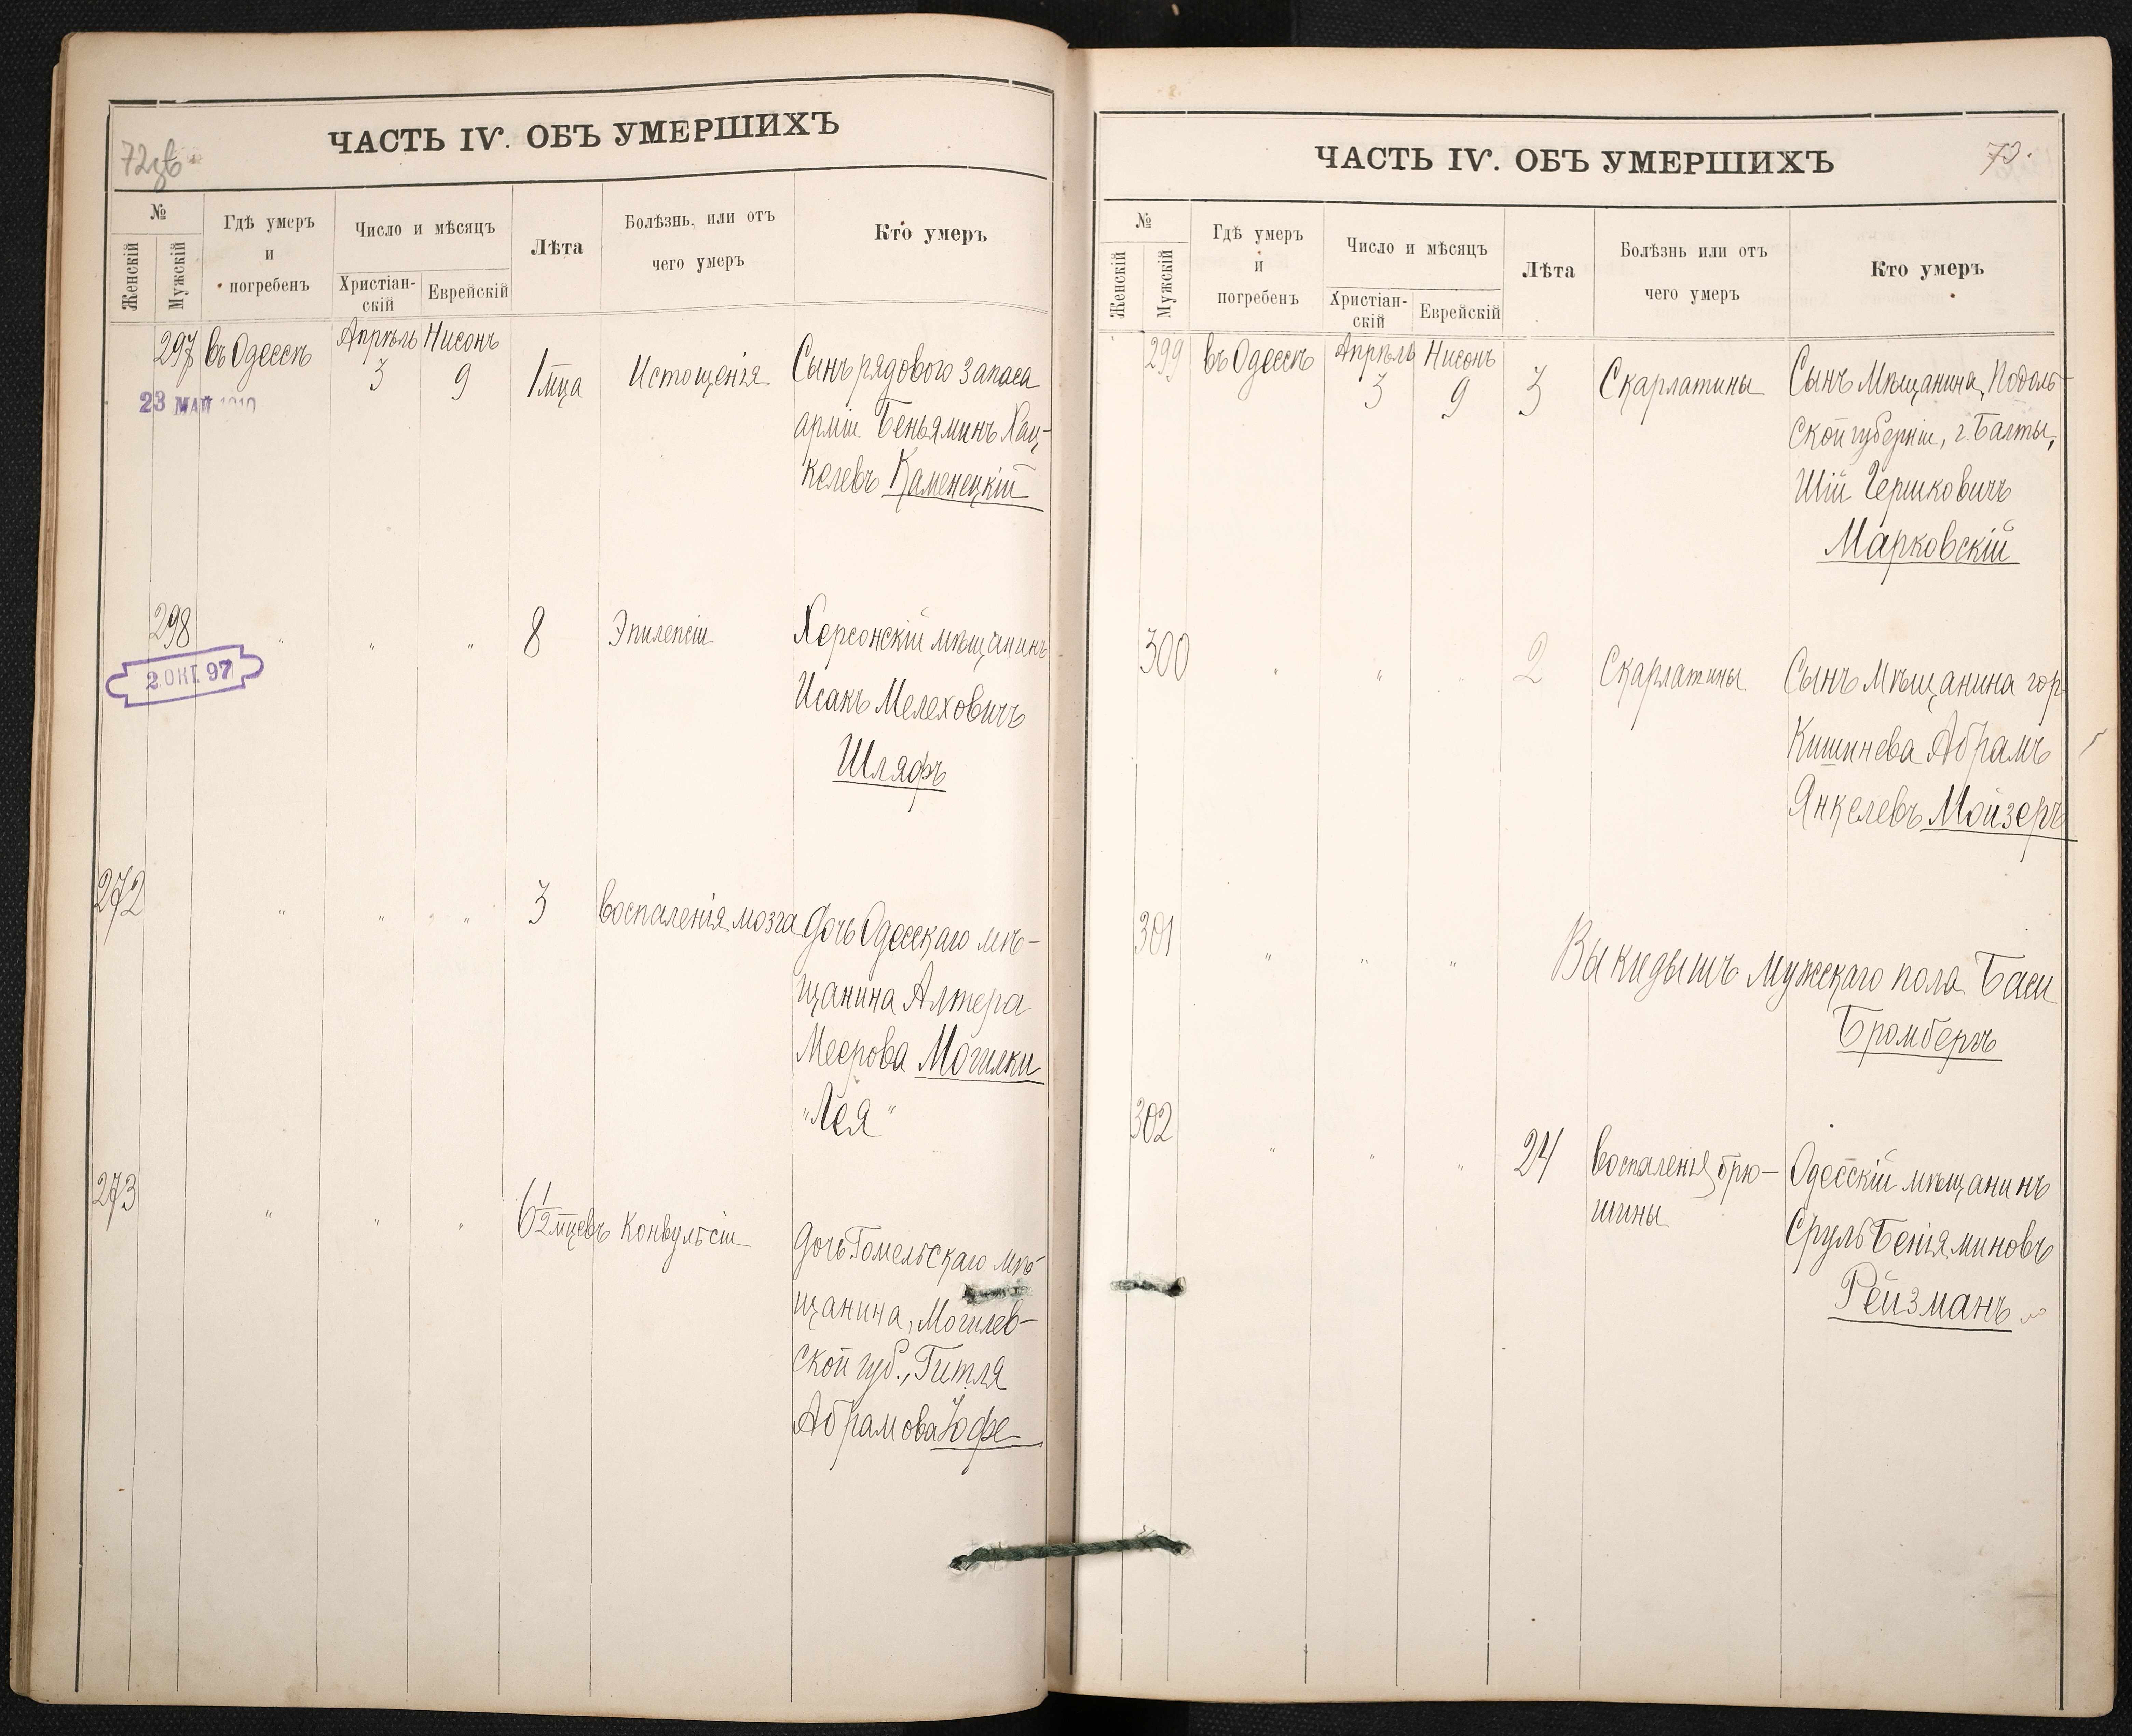 72об
ЧАСТЬ IV. ОБЪ УМЕРШИХЪ
№
Женскій
Мужскій
Гдѣ умеръ
и
погребенъ
Число и мѣсяцъ
Христіан-
скій
Еврейскій
Лѣта
Болѣзнь, или отъ
чего умеръ
Кто умеръ
297 въ Одессѣ Апрѣль 3 Нисонъ 9 1 мца Истощенія Сынъ рядового запаса
арміи Беньяминъ Хац-
келевъ Каменецкій
23 МАЙ 1910
298 " " " 8 Эпилепсіи Херсонскій мѣщанинъ
Исакъ Мелеховичъ
Шляфъ
2 ОКТ. 97
272 " " " " 3 Воспаленія мозга Дочь Одесскаго мѣ-
щанина Алтера
Меерова Могилки
"Лея"
273 " " " 6 1/2 мцевъ Конвульсіи Дочь Гомельскаго мѣ-
щанина, Могилев-
ской губ., Гитля
Абрамова Юфе
73.
ЧАСТЬ IV. ОБЪ УМЕРШИХЪ
№
Женскій
Мужскій
Гдѣ умеръ
и
погребенъ
Число и мѣсяцъ
Христіан-
скій
Еврейскій
Лѣта
Болѣзнь или отъ
чего умеръ
Кто умеръ
299 въ Одессѣ Апрѣль 3 Нисонъ 9 3 Скарлатины Сынъ Мѣщанина, Подоль-
ской губерніи, г. Балты,
Шій Гершковичъ
Марковскій
300 " " " 2 Скарлатины Сынъ Мѣщанина гор.
Кишинева Абрамъ
Янкелевъ Мойзеръ
301 " " " Выкидышъ мужскаго пола Баси
Бромбергъ
302 " " " 24 Воспаленія брю-
шины
Одесскій мѣщанинъ
Сруль Беніяминовъ
Рейзманъ